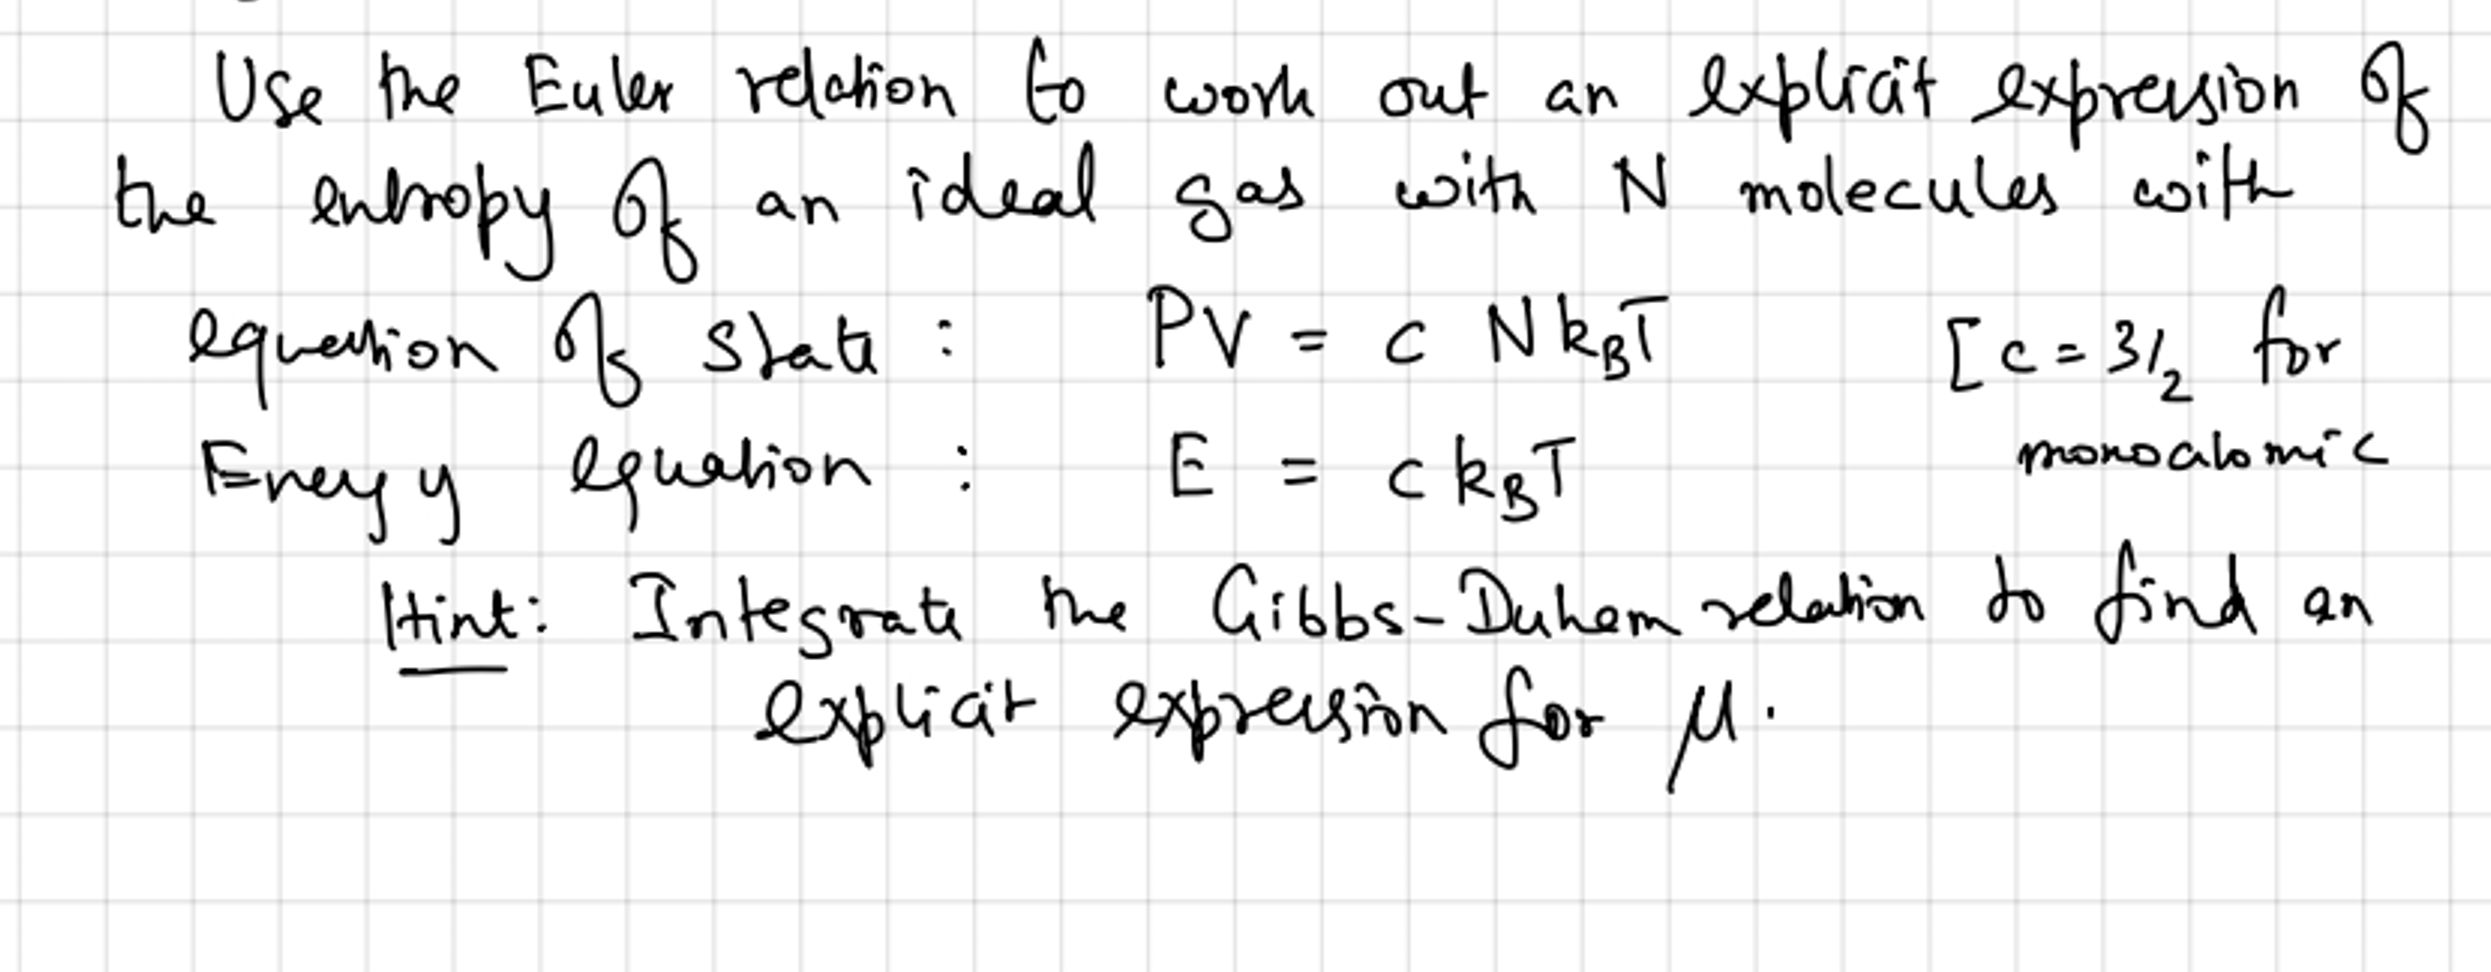 Use the Euler relation to work out an explicit expression of
the entropy of an ideal gas with N molecules with
equation of state : PV = c N k_B T [c = 3/2 for
Energy equation : E = c k_B T monoatomic
Hint: Integrate the Gibbs-Duhem relation to find an
explicit expression for μ.